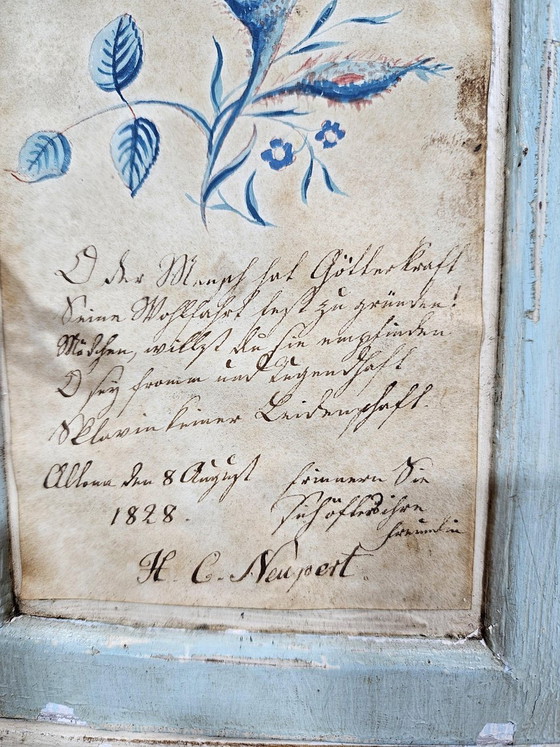 O der Mensch hat Götterkraft
Seine Wohlfahrt fest zu gründen!
Mädchen, willst du sie empfinden
O sey fromm und tugendhaft
Sklavin keiner Leidenschaft.
Altona den 8 August
1828.
Erinnern Sie
sich öfters ihre
Freundin
H. C. Neupert